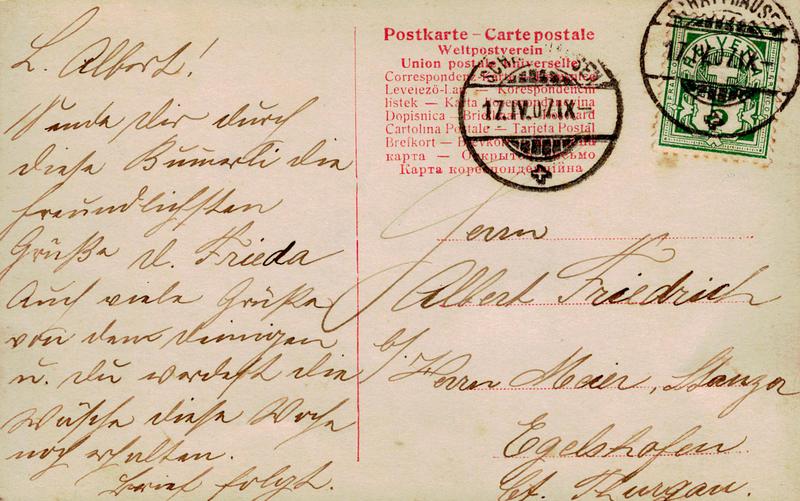 L. Albert!
Sende Dir durch
diese Bümerli die
freundlichsten
Grüße d. Frieda
Auch viele Grüße
von dem deinigen
u. du werdest die
Wäsche diese Woche
noch erhalten.
Brief folgt.
Postkarte – Carte postale
Weltpostverein
Union postale universelle
Correspondenz-Karte
Levelező-Lap – Korespondenční
lístek – Karta
Dopisnica –
Cartolina Postale – Tarjeta Postál
Breikort –
карта – Открытое письмо
Карта кореспонденційна
SCHAFFHAUSEN
17.IV.07.IX–
SCHAFFHAUSEN
17.IV.07.IX
HELVETIA
Herrn
Albert Friedrich
b/ Herrn Meier,
Egelshofen
Ct. Thurgau.